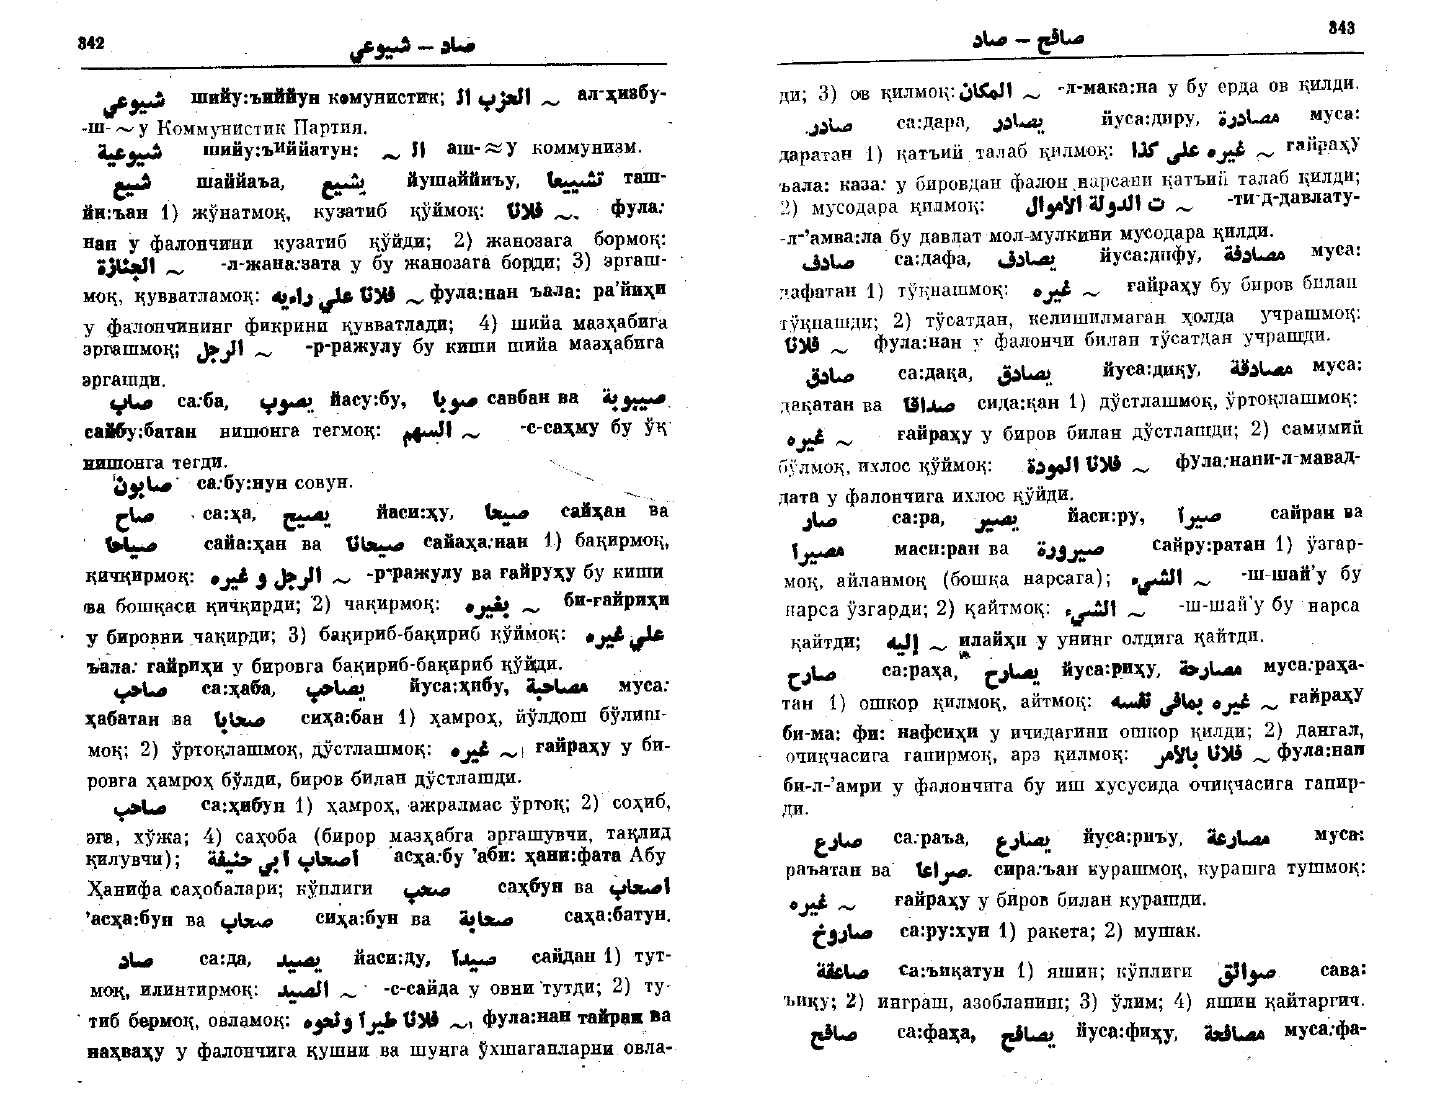 342
شيوعي — صاد
شيوعي шийу:ъиййун коммунистик; الحزب ال ~ ал-ҳизбу-
-ш-~у Коммунистик Партия.
شيوعية шийу:ъиййатун: ال ~ аш-≈у коммунизм.
شيع шаййаъа, يشيع йушаййиъу, تشييعا таш-
йи:ъан 1) жўнатмоқ, кузатиб қўймоқ: فلانا ~ фула:
нан у фалончини кузатиб қўйди; 2) жанозага бормоқ:
الجنازة ~ -л-жана:зата у бу жанозага борди; 3) эргаш-
моқ, қувватламоқ: فلانا علي رأيه ~ фула:нан ъала: ра’йиҳи
у фалончининг фикрини қувватлади; 4) шийа мазҳабига
эргашмоқ; الرجل ~ -р-ражулу бу киши шийа мазҳабига
эргашди.
صاب са:ба, يصوب йасу:бу, صوبا савбан ва صيبوبة
сайбу:батан нишонга тегмоқ: السهم ~ -с-саҳму бу ўқ
нишонга тегди.
صابون са:бу:нун совун.
صاح са:ҳа, يصيح йаси:ҳу, صيحا сайҳан ва
صياحا сайа:ҳан ва صيحانا сайаҳа:нан 1) бақирмоқ,
қичқирмоқ: الرجل و غيره ~ -р-ражулу ва ғайруҳу бу киши
ва бошқаси қичқирди; 2) чақирмоқ: بغيره ~ би-ғайриҳи
у бировни чақирди; 3) бақириб-бақириб қўймоқ: علي غيره
ъала: ғайриҳи у бировга бақириб-бақириб қўйди.
صاحب са:ҳаба, يصاحب йуса:ҳибу, مصاحبة муса:
ҳабатан ва صحابا сиҳа:бан 1) ҳамроҳ, йўлдош бўлиш-
моқ; 2) ўртоқлашмоқ, дўстлашмоқ: غيره ~ ғайраҳу у би-
ровга ҳамроҳ бўлди, биров билан дўстлашди.
صاحب са:ҳибун 1) ҳамроҳ, ажралмас ўртоқ; 2) соҳиб,
эга, хўжа; 4) саҳоба (бирор мазҳабга эргашувчи, тақлид
қилувчи); اصحاب ابي حنيفة ’асҳа:бу ’аби: ҳани:фата Абу
Ҳанифа саҳобалари; кўплиги صحب саҳбун ва اصحاب
’асҳа:бун ва صحاب сиҳа:бун ва صحابة саҳа:батун.
صاد са:да, يصيد йаси:ду, صيدا сайдан 1) тут-
моқ, илинтирмоқ: الصيد ~ -с-сайда у овни тутди; 2) ту-
тиб бермоқ, овламоқ: فلانا طيرا ونحوه ~, фула:нан тайран ва
наҳваҳу у фалончига қушни ва шунга ўхшаганларни овла-
صاد — صافح
343
ди; 3) ов қилмоқ: المكان ~ -л-мака:на у бу ерда ов қилди.
صادر са:дара, يصادر йуса:диру, مصادرة муса:
даратан 1) қатъий талаб қилмоқ: غيره على كذا ~ ғайраҳу
ъала: каза: у бировдан фалон нарсани қатъий талаб қилди;
2) мусодара қилмоқ: ت الدولة الأموال ~ -ти-д-давлату-
-л-’амва:ла бу давлат мол-мулкини мусодара қилди.
صادف са:дафа, يصادف йуса:дифу, مصادفة муса:
дафатан 1) тўқнашмоқ: غيره ~ ғайраҳу бу биров билан
тўқнашди; 2) тўсатдан, келишилмаган ҳолда учрашмоқ:
فلانا ~ фула:нан у фалончи билан тўсатдан учрашди.
صادق са:дақа, يصادق йуса:диқу, مصادقة муса:
дақатан ва صداقا сида:қан 1) дўстлашмоқ, ўртоқлашмоқ:
غيره ~ ғайраҳу у биров билан дўстлашди; 2) самимий
бўлмоқ, ихлос қўймоқ: فلانا المودة ~ фула:нани-л-мавад-
дата у фалончига ихлос қўйди.
صار са:ра, يصير йаси:ру, صيرا сайран ва
مصيرا маси:ран ва صيرورة сайру:ратан 1) ўзгар-
моқ, айланмоқ (бошқа нарсага); الشيء ~ -ш-шай’у бу
нарса ўзгарди; 2) қайтмоқ: الشيء ~ -ш-шай’у бу нарса
қайтди; إليه ~ илайҳи у унинг олдига қайтди.
صارح са:раҳа, يصارح йуса:риҳу, مصارحة муса:раҳа-
тан 1) ошкор қилмоқ, айтмоқ: غيره بمافى نفسه ~ ғайраҳу
би-ма: фи: нафсиҳи у ичидагини ошкор қилди; 2) дангал,
очиқчасига гапирмоқ, арз қилмоқ: فلانا بالأمر ~ фула:нан
би-л-’амри у фалончига бу иш хусусида очиқчасига гапир-
ди.
صارع са:раъа, يصارع йуса:риъу, مصارعة муса:
раъатан ва صراعا сира:ъан курашмоқ, курашга тушмоқ:
غيره ~ ғайраҳу у биров билан курашди.
صاروخ са:ру:хун 1) ракета; 2) мушак.
صاعقة са:ъиқатун 1) яшин; кўплиги صواعق сава:
ъиқу; 2) инграш, азобланиш; 3) ўлим; 4) яшин қайтаргич.
صافح са:фаҳа, يصافح йуса:фиҳу, مصافحة муса:фа-